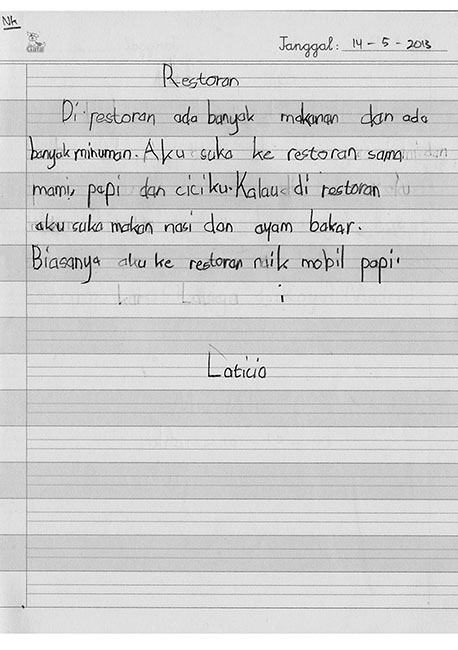 Nk
Tanggal: 14 - 5 - 2013
Restoran
Di restoran ada banyak makanan dan ada
banyak minuman. Aku suka ke restoran sama
mami, papi dan ciciku. Kalau di restoran
aku suka makan nasi dan ayam bakar.
Biasanya aku ke restoran naik mobil papi.
i
Laticia